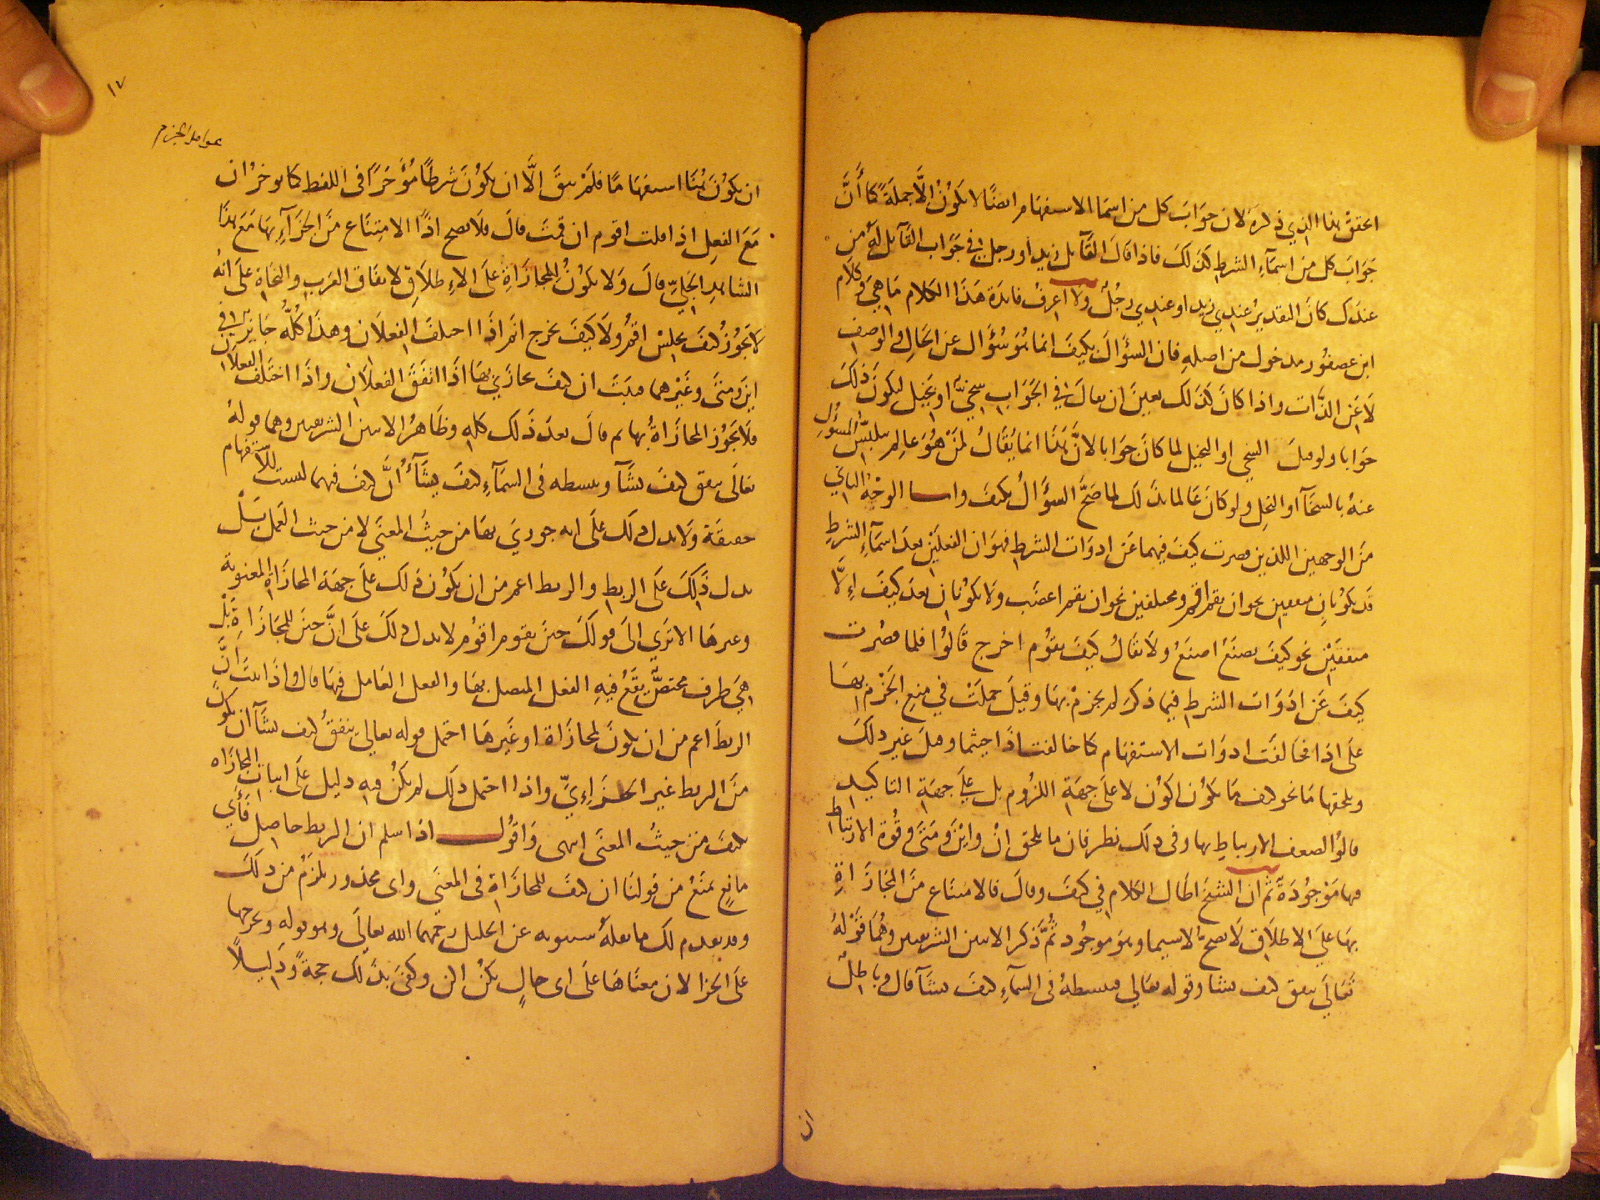 اعتق هذا الذي ذكره لان جواب كل من اسما الاستفهام ايضا لا يكون الا جملة كما ان
جواب كل من اسماء الشرط كذلك فاذا قال القائل زيد او رجل في جواب القائل له من
عندك كان التقدير عندي زيد او عندي رجل ولا اعرف فائدة هذا الكلام ما هي وكلام
ابن عصفور مدخول من اصله فان السؤال بكيف انما هو سؤال عن الحال والوصف
لا عن الذات واذا كان كذلك تعين ان يقال في الجواب سخي او بخيل ليكون ذلك
جوابا ولو قيل السخي او البخيل لما كان جوابا لان هنا انما يقال لمن هو عالم بتلبس المسؤل
عنه بالسخا او البخل ولو كان عالما بذلك لما صح السؤال بكيف واما الوجه الثاني
من الوجهين اللذين صرت كيف فيهما عن ادوات الشرط فهو ان الفعلين بعد اسماء الشرط
قد يكونان متفقين نحو ان يقم اقم ومختلفين نحو ان يقم اغضب ولا يكونان بعد كيف الا
متفقين نحو كيف تصنع اصنع ولا يقال كيف تقوم اخرج قالوا فلما قصرت
كيف عن ادوات الشرط فيما ذكر لم يجزم بها وقيل حملت في منع الجزم بها
على اذا مخالفت ادوات الاستفهام كما خالفت اذا حيثما وقيل غير ذلك
ويلحقها ما نحو كيف ما تكون اكون لا على جهة اللزوم بل على جهة التاكيد
قالوا لضعف الارتباط بها وفي ذلك نظر فان ما يلحق ان واين ومتى وقوة الارتباط
فيها موجودة ثم ان الشيخ اطال الكلام في كيف وقال فالامتناع من المجازاة
بها على الاطلاق لا يصح لا سيما وهو موجود ثم ذكر الايتين الشريفتين وهما قوله
تعالى ينفق كيف يشا وقوله تعالى فيبسطه في السماء كيف يشا قال وباطل
ان
١٧
عوامل الجزم
ان يكون هنا استفهاما فلم يبق الا ان يكون شرطا مؤخرا في اللفظ كما يوخر ان
مع الفعل اذا قلت اقوم ان قمت قال فلا يصح اذا الامتناع من الجزاء بها مع هذا
الشاهد الجلي قال ولا يكون للمجازاة على الاطلاق لاتفاق العرب والنحاة على انه
لا يجوز كيف تجلس اقم ولا كيف تخرج انم اذا اختلف الفعلان وهذا كله جائز في
اين ومتى وغيرهما فثبت ان كيف يجازي بها اذا اتفق الفعلان واذا اختلف الفعلان
فلا يجوز المجازاة بها ثم قال بعد ذلك كله وظاهر الايتين الشريفتين وهما قوله
تعالى ينفق كيف يشاء ويبسطه في السماء كيف يشاء ان كيف فيهما ليست للاستفهام
حقيقة ولا يدل ذلك على انه جوزي بها من حيث المعنى لا من حيث العمل بل
يدل ذلك على الربط والربط اعم من ان يكون ذلك على جهة المجازاة المعنوية
وغيرها الا تري الى قولك حين يقوم اقوم لا يدل ذلك على ان حين للمجازاة بل
هي ظرف مختص يقع فيه الفعل المتصل بها والفعل العامل فيها قال واذا ثبت ان
الربط اعم من ان يكون لمجازاة او غيرها احتمل قوله تعالى ينفق كيف يشاء ان يكون
من الربط غير الجزاءي واذا احتمل ذلك لم يكن فيه دليل على اثبات المجازاة
بكيف من حيث المعنى انتهى واقول اذا سلم ان الربط حاصل فأي
مانع يمنع من قولنا ان كيف للمجازاة في المعنى واى محذور يلزم من ذلك
وقد يقدم لك ما نقله سيبويه عن الخليل رحمهما الله تعالى وهو قوله ومخرجها
على الجزا لان معناها على اى حال تكن اكن وكفى بذلك حجة ودليلا